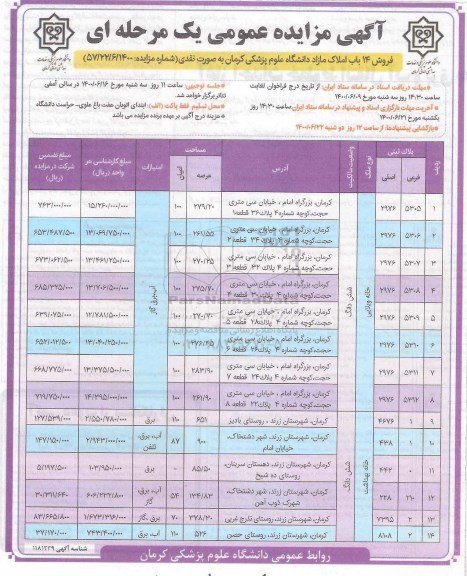 آگهی مزایده عمومی یک مرحله ای
فروش ۱۴ باب املاک مازاد دانشگاه علوم پزشکی کرمان به صورت نقدی(شماره مزایده: ۵۷/۲۲/۶/۱۴۰۰)
مهلت دریافت اسناد در سامانه ستاد ایران: از تاریخ درج فراخوان لغایت
ساعت ۱۴:۳۰ روز سه شنبه مورخ ۱۴۰۰/۰۶/۰۹
آخرین مهلت بارگزاری اسناد و پیشنهاد در سامانه ستاد ایران: ساعت ۱۴:۳۰ روز
یکشنبه مورخ ۱۴۰۰/۰۶/۲۱
بازگشایی پیشنهادها: از ساعت ۱۲ روز دو شنبه ۱۴۰۰/۰۶/۲۲
جلسه توجیهی: ساعت ۱۱ روز سه شنبه مورخ ۱۴۰۰/۰۶/۱۶ در سالن آمفی
تئاتر برگزار خواهد شد.
محل تسلیم فقط پاکت (الف): ابتدای اتوبان هفت باغ علوی- حراست دانشگاه
هزینه درج آگهی بر عهده برنده مزایده می باشد
ردیف پلاک ثبتی فرعی اصلی نوع ملک وضعیت مالکیت آدرس مساحت عرصه اعیان امتیازات مبلغ کارشناسی هر واحد (ریال) مبلغ تضمین شرکت در مزایده (ریال)
۱ ۵۳۰۵ ۲۹۷۶ کرمان، بزرگراه امام ، خیابان سی متری حجت،کوچه شماره ۴ پلاک۳۶ قطعه۱ ۲۷۹/۲۰ ۱۰۰ ۱۵/۲۶۰/۰۰۰/۰۰۰ ۷۶۳/۰۰۰/۰۰۰
۲ ۵۳۰۶ ۲۹۷۶ کرمان، بزرگراه امام ، خیابان سی متری حجت،کوچه شماره ۴ پلاک۳۴ قطعه ۲ ۲۶۱/۵۵ ۱۰۰ ۱۳/۰۶۹/۷۵۰/۰۰۰ ۶۵۳/۴۸۷/۵۰۰
۳ ۵۳۰۷ ۲۹۷۶ کرمان، بزرگراه امام ، خیابان سی متری حجت،کوچه شماره ۴ پلاک۳۲ قطعه ۳ ۲۷۰/۲۵ ۱۰۰ ۱۳/۴۶۱/۲۵۰/۰۰۰ ۶۷۳/۰۶۲/۵۰۰
۴ ۵۳۰۸ ۲۹۷۶ کرمان، بزرگراه امام ، خیابان سی متری حجت،کوچه شماره ۴ پلاک۳۰ قطعه ۴ ۲۷۵/۷۰ ۱۰۰ ۱۳/۷۰۶/۵۰۰/۰۰۰ ۶۸۵/۳۲۵/۰۰۰
۵ ۵۳۰۹ ۲۹۷۶ کرمان، بزرگراه امام ، خیابان سی متری حجت،کوچه شماره ۴ پلاک۲۸ قطعه ۵ ۲۷۰/۲۰ ۱۰۰ ۱۲/۷۸۱/۵۰۰/۰۰۰ ۶۳۹/۰۷۵/۰۰۰
۶ ۵۳۱۰ ۲۹۷۶ کرمان، بزرگراه امام ، خیابان سی متری حجت،کوچه شماره ۴ پلاک۲۶ قطعه ۶ ۲۷۶/۴۵ ۱۰۰ ۱۳/۰۴۰/۲۵۰/۰۰۰ ۶۵۲/۰۱۲/۵۰۰
۷ ۵۳۱۱ ۲۹۷۶ کرمان، بزرگراه امام ، خیابان سی متری حجت،کوچه شماره ۴ پلاک۲۴ قطعه ۷ ۲۸۳/۹۰ ۱۰۰ ۱۳/۳۷۵/۵۰۰/۰۰۰ ۶۶۸/۷۷۵/۰۰۰
۸ ۵۳۱۲ ۲۹۷۶ کرمان، بزرگراه امام ، خیابان سی متری حجت،کوچه شماره ۴ پلاک۲۲ قطعه ۸ ۲۶۱/۹۰ ۱۰۰ ۱۴/۳۹۵/۰۰۰/۰۰۰ ۷۱۹/۷۵۰/۰۰۰
خانه ویلایی شش دانگ آب،برق،گاز
۹ ۱ ۴۶۷۶ کرمان، شهرستان زرند ، روستای بادیز ۶۵۱ ۱۱۰ برق ۲/۵۵۰/۷۸۰/۰۰۰ ۱۲۷/۵۳۹/۰۰۰
۱۰ ۱ ۴۳۸ کرمان، شهرستان زرند، شهر دشتخاک، خیابان امام ۹۰۰ ۸۷ آب، برق، تلفن ۲/۹۴۳/۰۰۰/۰۰۰ ۱۴۷/۱۵۰/۰۰۰
۱۱ ۰ ۶۴۲ کرمان، شهرستان زرند، دهستان سربنان، روستای ده شیخ ۸۵/۵۰ - برق ۱۰۳/۹۵۰/۰۰۰ ۵/۱۹۷/۵۰۰
۱۲ ۲۱۰ ۲۲۸ کرمان، شهرستان زرند، شهر دشتخاک، شهرک ذوب آهن ۱۳۴/۸۳ ۵۴ آب، برق، گاز
۱۳ ۲ ۷۳۹۵ کرمان، شهرستان زرند، روستای نلرج غربی ۳۷۸/۳۰ ۷۰ برق ،گاز ۱/۶۷۳/۳۱۶/۰۰۰ ۸۳/۶۶۵/۸۰۰
۱۴ ۲ ۸۱۰۸ کرمان، شهرستان زرند، روستای حصن ۵۲۶ ۱۱۰ آب، برق ۷۴۳/۴۰۰/۰۰۰ ۳۷/۱۷۰/۰۰۰
خانه بهداشت شش دانگ
روابط عمومی دانشگاه علوم پزشکی کرمان
شناسه آگهی ۱۱۸۱۲۳۹